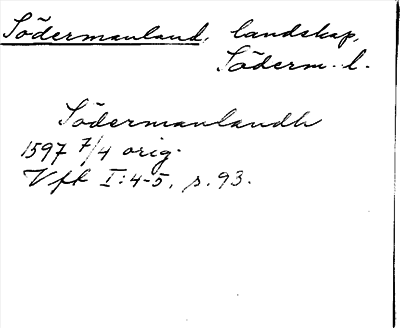 Södermanland, landskap,
Söderm. l.
Södermanlandh
1597 7/4 orig.
Vfk I:4-5, s. 93.